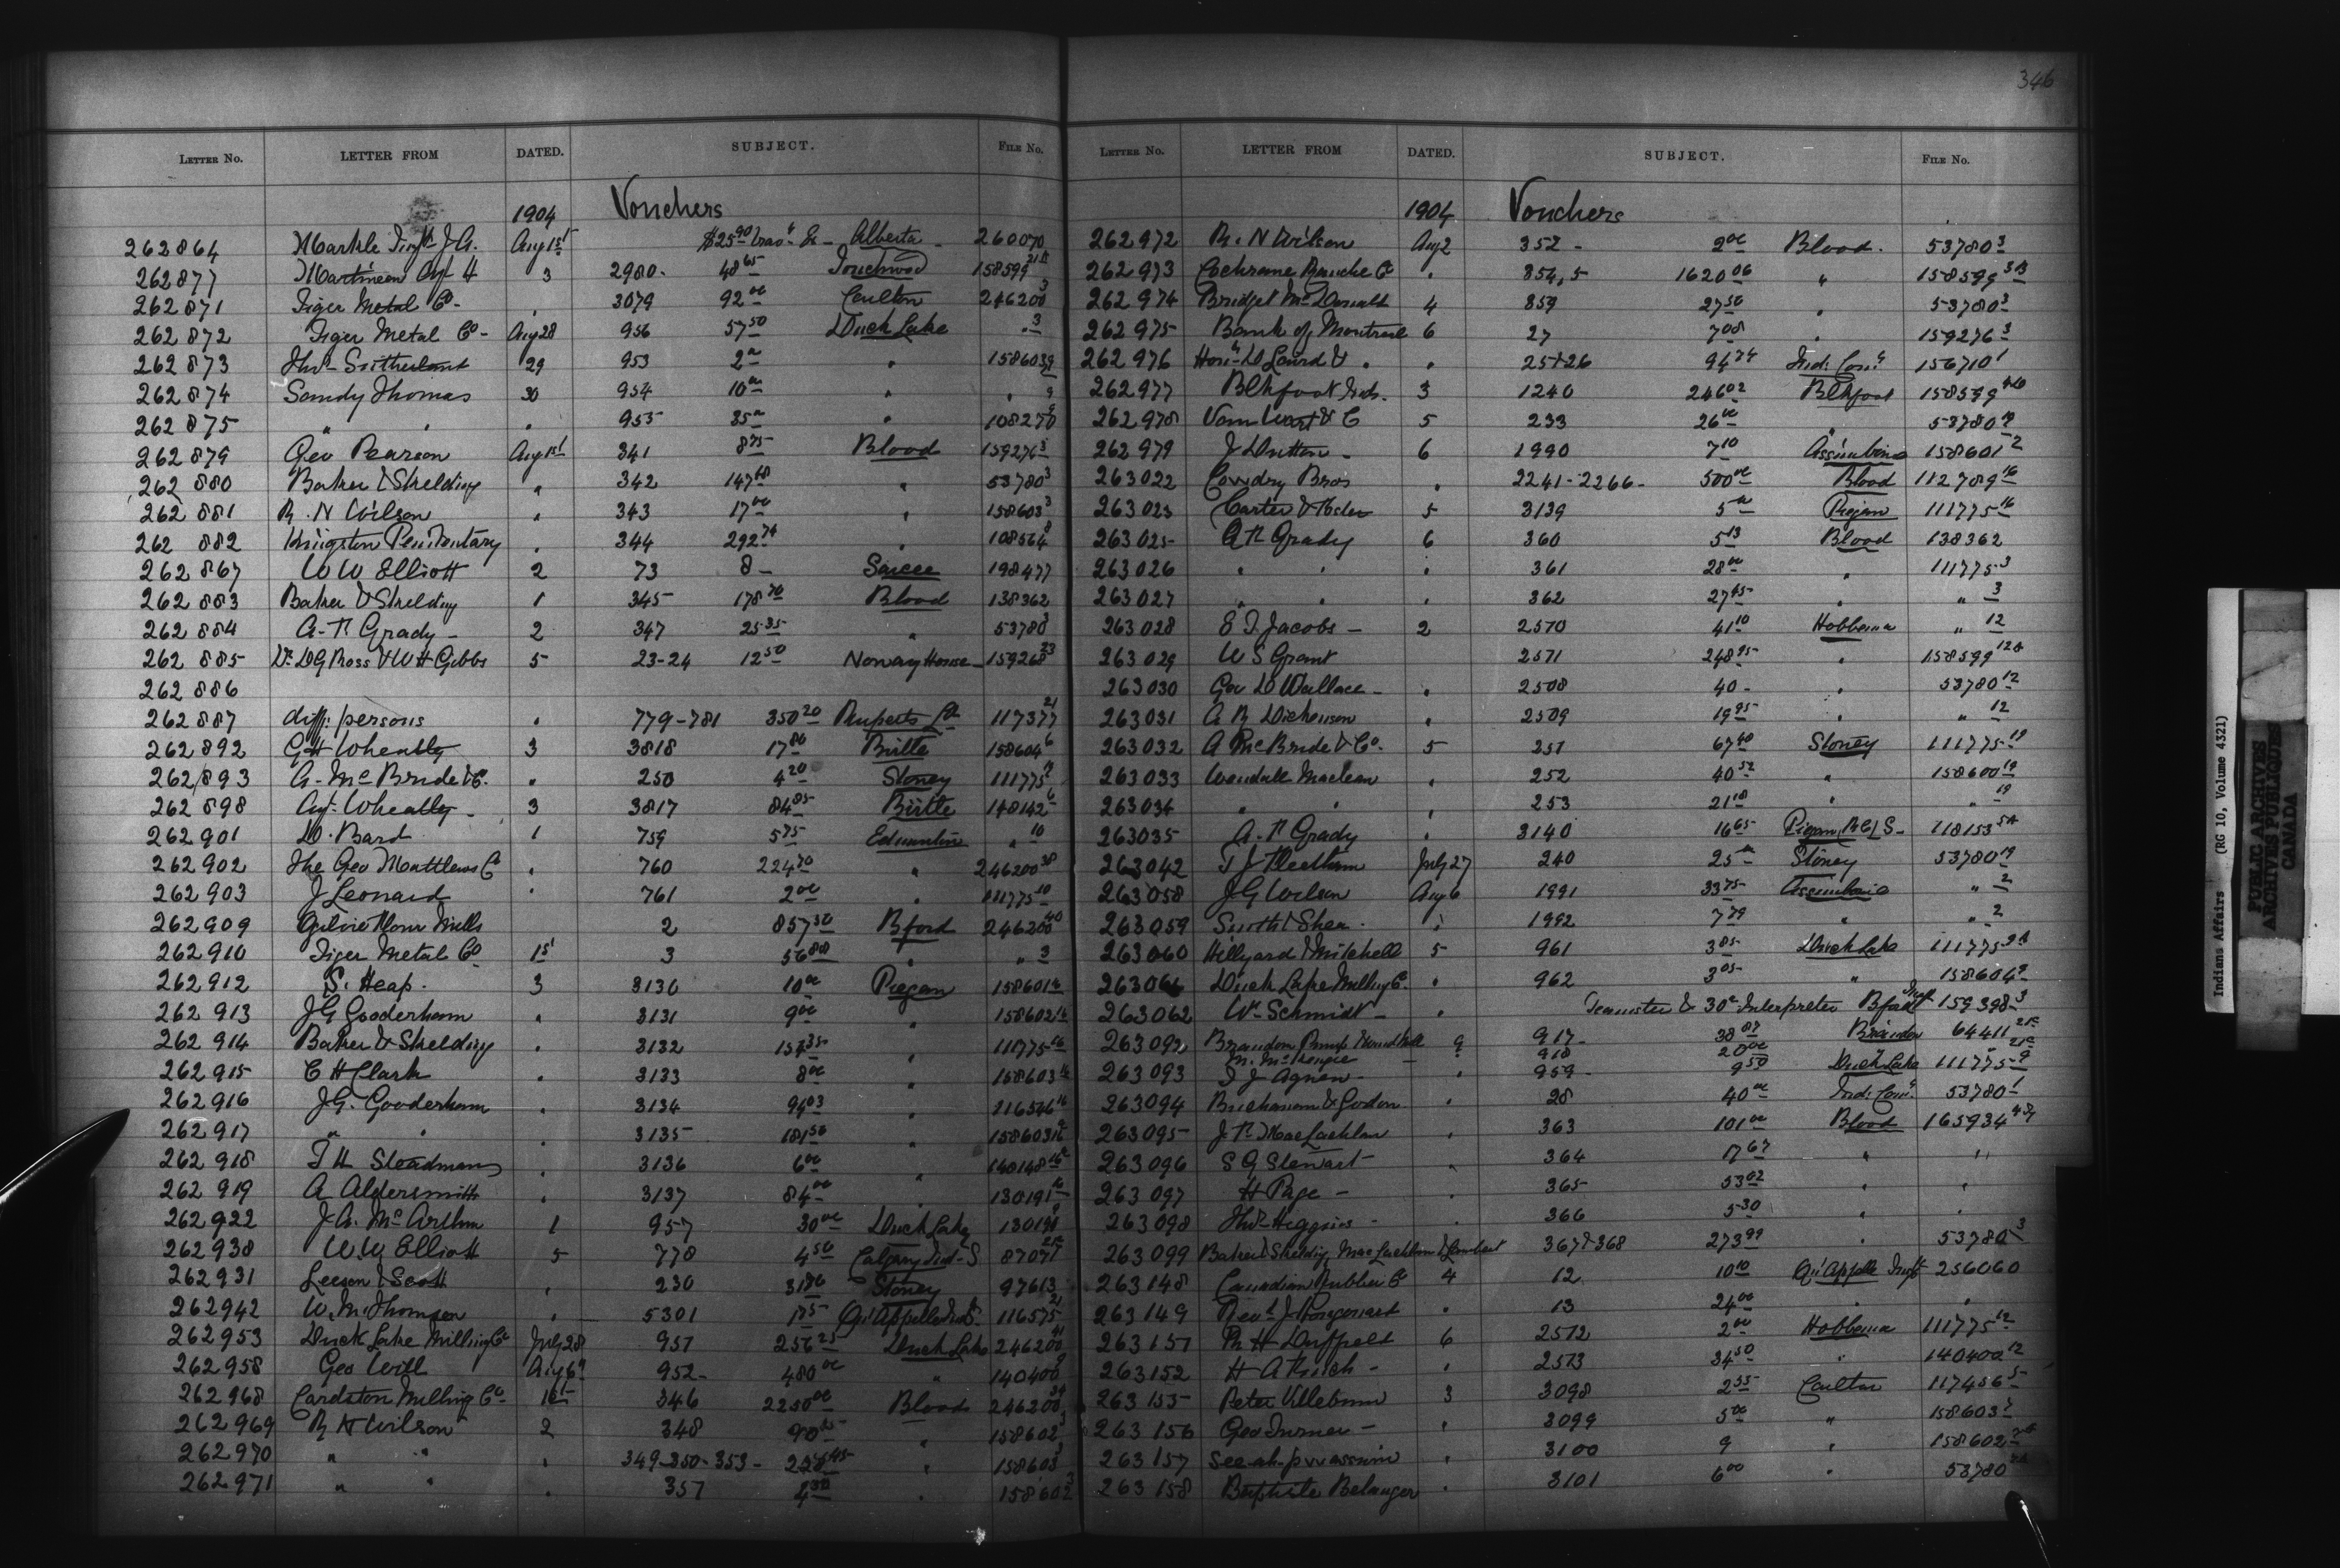 346
LETTER NO. LETTER FROM DATED. SUBJECT. FILE NO.
1904 Vouchers
262864 Markle J.A. Aug 1st $25.90 Alberta 260070
262877 3 2980 48.65 Touchwood 158599
262871 Tiger Metal Co 3079 92.00 Carlton 246200 3
262872 Tiger Metal Co Aug 28 956 57.50 Duck Lake " 3
262873 Thos Sutherland 29 953 2.00 " 158603 9
262874 Sandy Thomas 30 954 10.00 " " 9
262875 " " " 955 35.00 " 108270
262879 Geo Pearson Aug 1st 341 8.75 Blood 159276 3
262880 Baker & Skelding " 342 147.68 " 53780 3
262881 R. N Wilson " 343 17.00 " 158603 3
262882 Kingston Penitentary " 344 292.74 " 108564
262867 W W Elliott 2 73 8 – Sarcee 198477
262883 Baker & Skelding 1 345 178.70 Blood 138362
262884 A. P. Grady – 2 347 25.35 " 53780 3
262885 Dr. D G Ross & W H Gibbs 5 23-24 12.50 Norway House 159268 23
262886
262887 diff. persons " 779-781 350.20 Ruperts Ld 117377 21
262892 G H Wheatley 3 3818 17.86 Birtle 158604 6
262893 A. McBride & Co. " 250 4.20 Stoney 111775
262898 Agt. Wheatley – 3 3817 84.85 Birtle 148142 6
262901 D. Bard 1 759 5.75 Edmonton " 10
262902 The Geo Matthews Co " 760 224.70 " 246200
262903 J Leonard " 761 2.00 " 111775 10
262909 Ogilvie Flour Mills 2 857.50 Bford 246200
262910 Tiger Metal Co 1st 3 56.88 " " 3
262912 S. Heap. 3 3130 10.00 Piegan 158601
262913 J G Gooderham " 3131 9.00 " 158602
262914 Baker & Skelding " 3132 157.35 " 111775 16
262915 C H Clark " 3133 8.00 " 158603 16
262916 J. G. Gooderham " 3134 94.03 " 116546
262917 " " " 3135 181.50 " 158603
262918 T H Steadman " 3136 6.00 " 140148
262919 A Aldersmith " 3137 84.00 " 130191 16
262922 J. A. McArthur 1 957 30.00 Duck Lake 130191
262938 W. W Elliott 5 778 4.50 Calgary Ind. S 87071
262931 Leeson & Scott " 230 31.86 Stoney 97613
262942 W. M. Thomson " 5301 1.75 Qu'Appelle 116575 21
262953 Duck Lake Milling Co July 28 951 256.25 Duck Lake 246200
262958 Geo Will Aug 6 952 480.00 " 140400
262968 Cardston Milling Co 1st 346 2250.00 Blood 246200
262969 R N Wilson 2 348 90.35 " 158602 3
262970 " " " 349-350-353 " 158603 3
262971 " " " 357 4.30 " 158602 3
LETTER NO. LETTER FROM DATED. SUBJECT. FILE NO.
1904 Vouchers
262972 R. N Wilson Aug 2 352 – 2.00 Blood. 53780 3
262973 Cochrane Ranche Co " 854,5 1620.06 " 158599
262974 Bridget McDonald 4 859 27.50 " 53780 3
262975 Bank of Montreal 6 27 7.08 " 159276 3
262976 Hon. D Laird " " 25+26 94.74 Ind. Com. 156710 1
262977 Blkfoot Inds. 3 1240 246.02 Blkfoot 158599
262978 Van Wart & C 5 233 26.00 " 53780
262979 J Dutton – 6 1990 7.10 Assiniboine 158601 2
263022 Cowdry Bros " 2241-2266- 500.00 Blood 112789 16
263023 Carter 5 3139 5.00 Piegan 111775 16
263025 A P. Grady 6 360 5.13 Blood 138362
263026 " " " 361 28.00 " 111775 3
263027 " " " 362 27.45 " " 3
263028 E. T. Jacobs – 2 2570 41.10 Hobbema " 12
263029 W S Grant 2571 248.95 " 158599
263030 Geo D Wallace – " 2508 40 – " 53780 12
263031 A. R. Dickenson " 2509 19.95 " " 12
263032 A McBride & Co. 5 251 67.40 Stoney 111775 19
263033 Wendall Maclean " 252 40.52 " 158600 19
263034 " " " 253 21.18 " " 19
263035 A. P. Grady " 3140 16.65 Piegan 118153
263042 T J Fleetham July 27 240 25.00 Stoney 53780 19
263058 J G Wilson Aug 6 1991 33.75 Assiniboine " 2
263059 Smith & Shea " 1992 7.79 " " 2
263060 Hillyard Mitchell 5 961 3.85 Duck Lake 111775
263061 Duck Lake Milling Co. " 962 3.05 " 158604 9
263062 Wm Schmidt – " Teamster & Interpreter Bford 159398 3
263092 Brandon Pump 9 917 38.87 Brandon 64411
M. McKenzie – 918 20.00
263093 T J Agnew " 959 9.50 Duck Lake 111775 9
263094 Buchanan & Gordon " 28 40.00 Ind. Com. 53780 1
263095 J. P. MacLachlan " 363 101.00 Blood 165934
263096 S G Stewart " 364 17.67 " "
263097 H Page – " 365 53.02 " "
263098 Thos Higgins – " 366 5.30 " "
263099 Baker & Skelding, MacLachlan & Lambert 367&368 273.99 " 53780 3
263148 Canadian Rubber Co 4 12 10.10 Qu'Appelle 256060
263149 Revd. J. Hugonard " 13 24.00 " "
263151 R H Duffield 6 2572 2.00 Hobbema 111775 12
263152 " 2573 34.50 " 140400 12
263155 Peter Villebrun 3 3098 2.55 Carlton 117456 5
263156 Geo Turner – " 3099 5.00 " 158603
263157 " 3100 9 " 158602
263158 Baptiste Belanger " 3101 6.00 " 53780
Indians Affairs (RG 10, Volume 4321)
PUBLIC ARCHIVES
ARCHIVES PUBLIQUES
CANADA